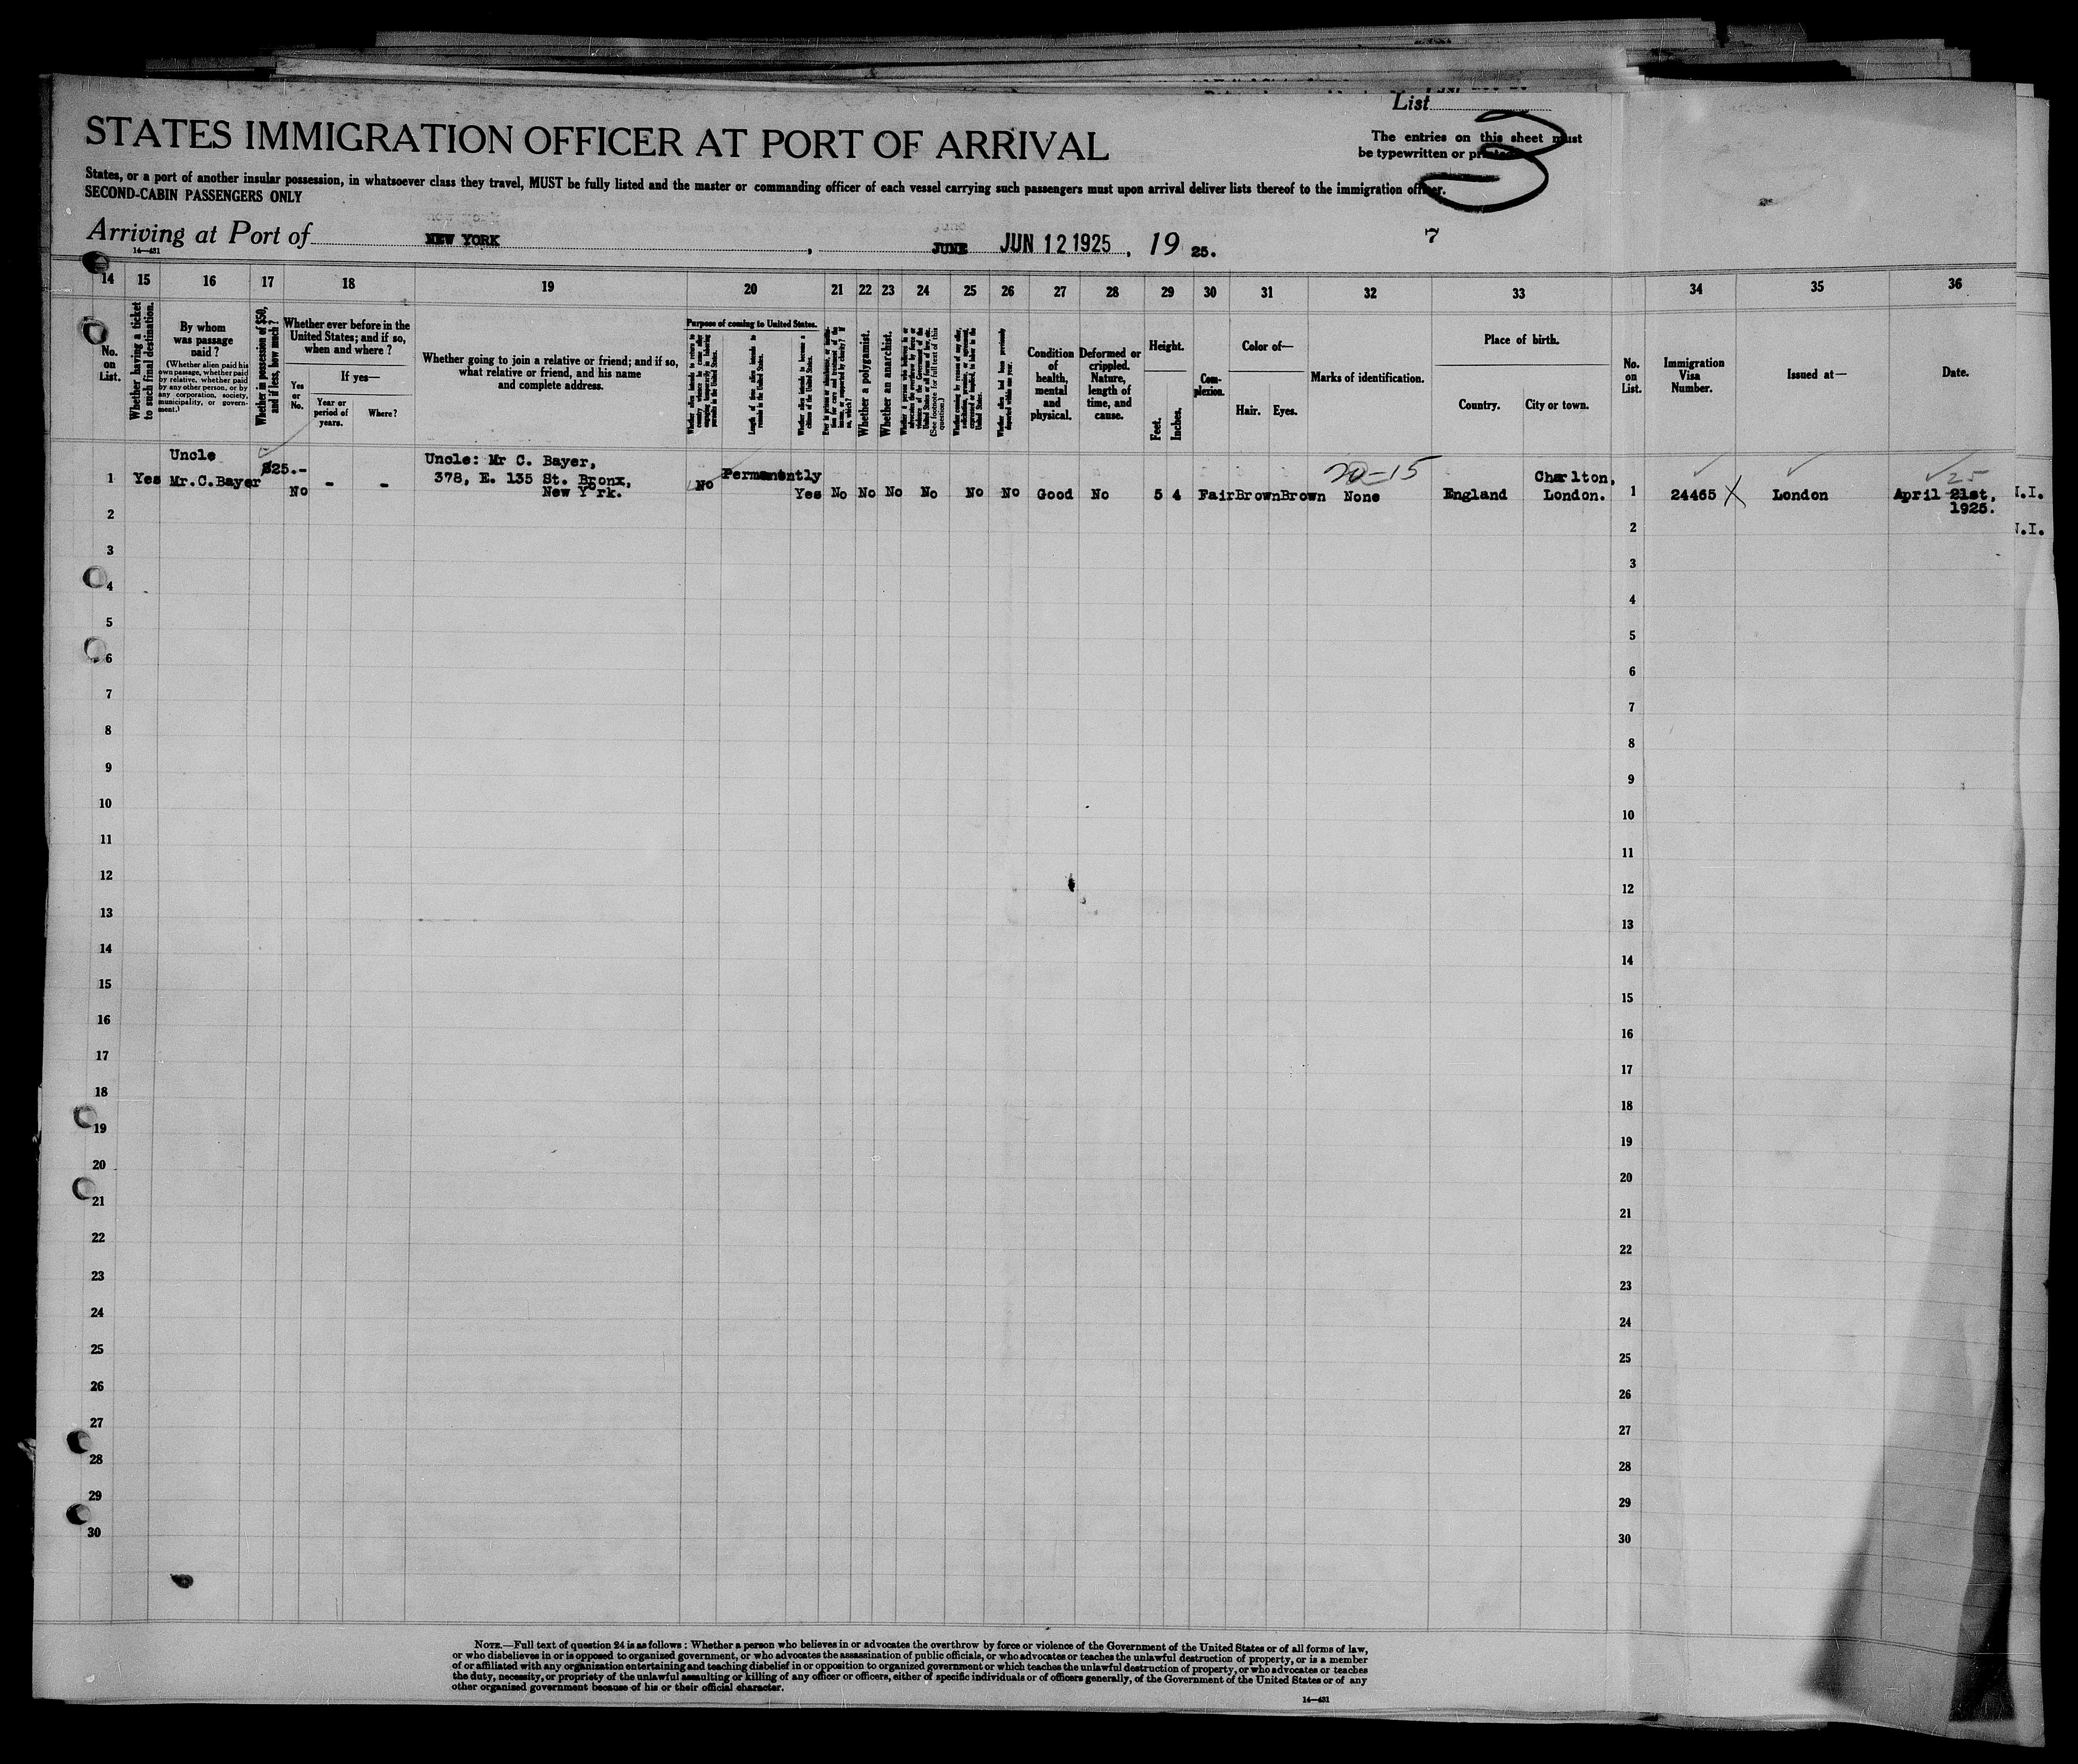 List
STATES IMMIGRATION OFFICER AT PORT OF ARRIVAL
The entries on this sheet must
be typewritten or printed.
3
States, or a port of another insular possession, in whatsoever class they travel, MUST be fully listed and the master or commanding officer of each vessel carrying such passengers must upon arrival deliver lists thereof to the immigration officer.
SECOND-CABIN PASSENGERS ONLY
Arriving at Port of NEW YORK, JUNE JUN 12 1925, 19 25.
7
14—431
14 15 16 17 18 19 20 21 22 23 24 25 26 27 28 29 30 31 32 33 34 35 36
No. on List.
Whether having a ticket to such final destination.
By whom was passage paid?
(Whether alien paid his own passage, whether paid by relative, whether paid by any other person, or by any corporation, society, municipality, or government.)
Whether in possession of $50, and if less, how much?
Whether ever before in the United States; and if so, when and where?
Yes or No.
If yes—
Year or period of years.
Where?
Whether going to join a relative or friend; and if so, what relative or friend, and his name and complete address.
Purpose of coming to United States.
Length of time alien intends to remain in the United States.
Whether alien intends to become a citizen of the United States.
Whether a polygamist.
Whether an anarchist.
(See footnote for full text of this question.)
Condition of health, mental and physical.
Deformed or crippled. Nature, length of time, and cause.
Height.
Feet. Inches.
Complexion.
Color of—
Hair. Eyes.
Marks of identification.
Place of birth.
Country. City or town.
No. on List.
Immigration Visa Number.
Issued at—
Date.
1 Yes Uncle Mr.C.Bayer $25.- No - - Uncle: Mr C. Bayer,
378, E. 135 St. Bronx,
New Y rk.
No Permanently Yes No No No No No No Good No 5 4 Fair Brown Brown None England Charlton,
London.
20-15
1 24465 X London April 21st,
1925.
25
I.I.
I.I.
2
3
4
5
6
7
8
9
10
11
12
13
14
15
16
17
18
19
20
21
22
23
24
25
26
27
28
29
30
2
3
4
5
6
7
8
9
10
11
12
13
14
15
16
17
18
19
20
21
22
23
24
25
26
27
28
29
30
NOTE.—Full text of question 24 is as follows: Whether a person who believes in or advocates the overthrow by force or violence of the Government of the United States or of all forms of law,
or who disbelieves in or is opposed to organized government, or who advocates the assassination of public officials, or who advocates or teaches the unlawful destruction of property, or is a member
of or affiliated with any organization entertaining and teaching disbelief in or opposition to organized government or which teaches the unlawful destruction of property, or who advocates or teaches
the duty, necessity, or propriety of the unlawful assaulting or killing of any officer or officers, either of specific individuals or of officers generally, of the Government of the United States or of any
other organized government because of his or their official character.
14—431